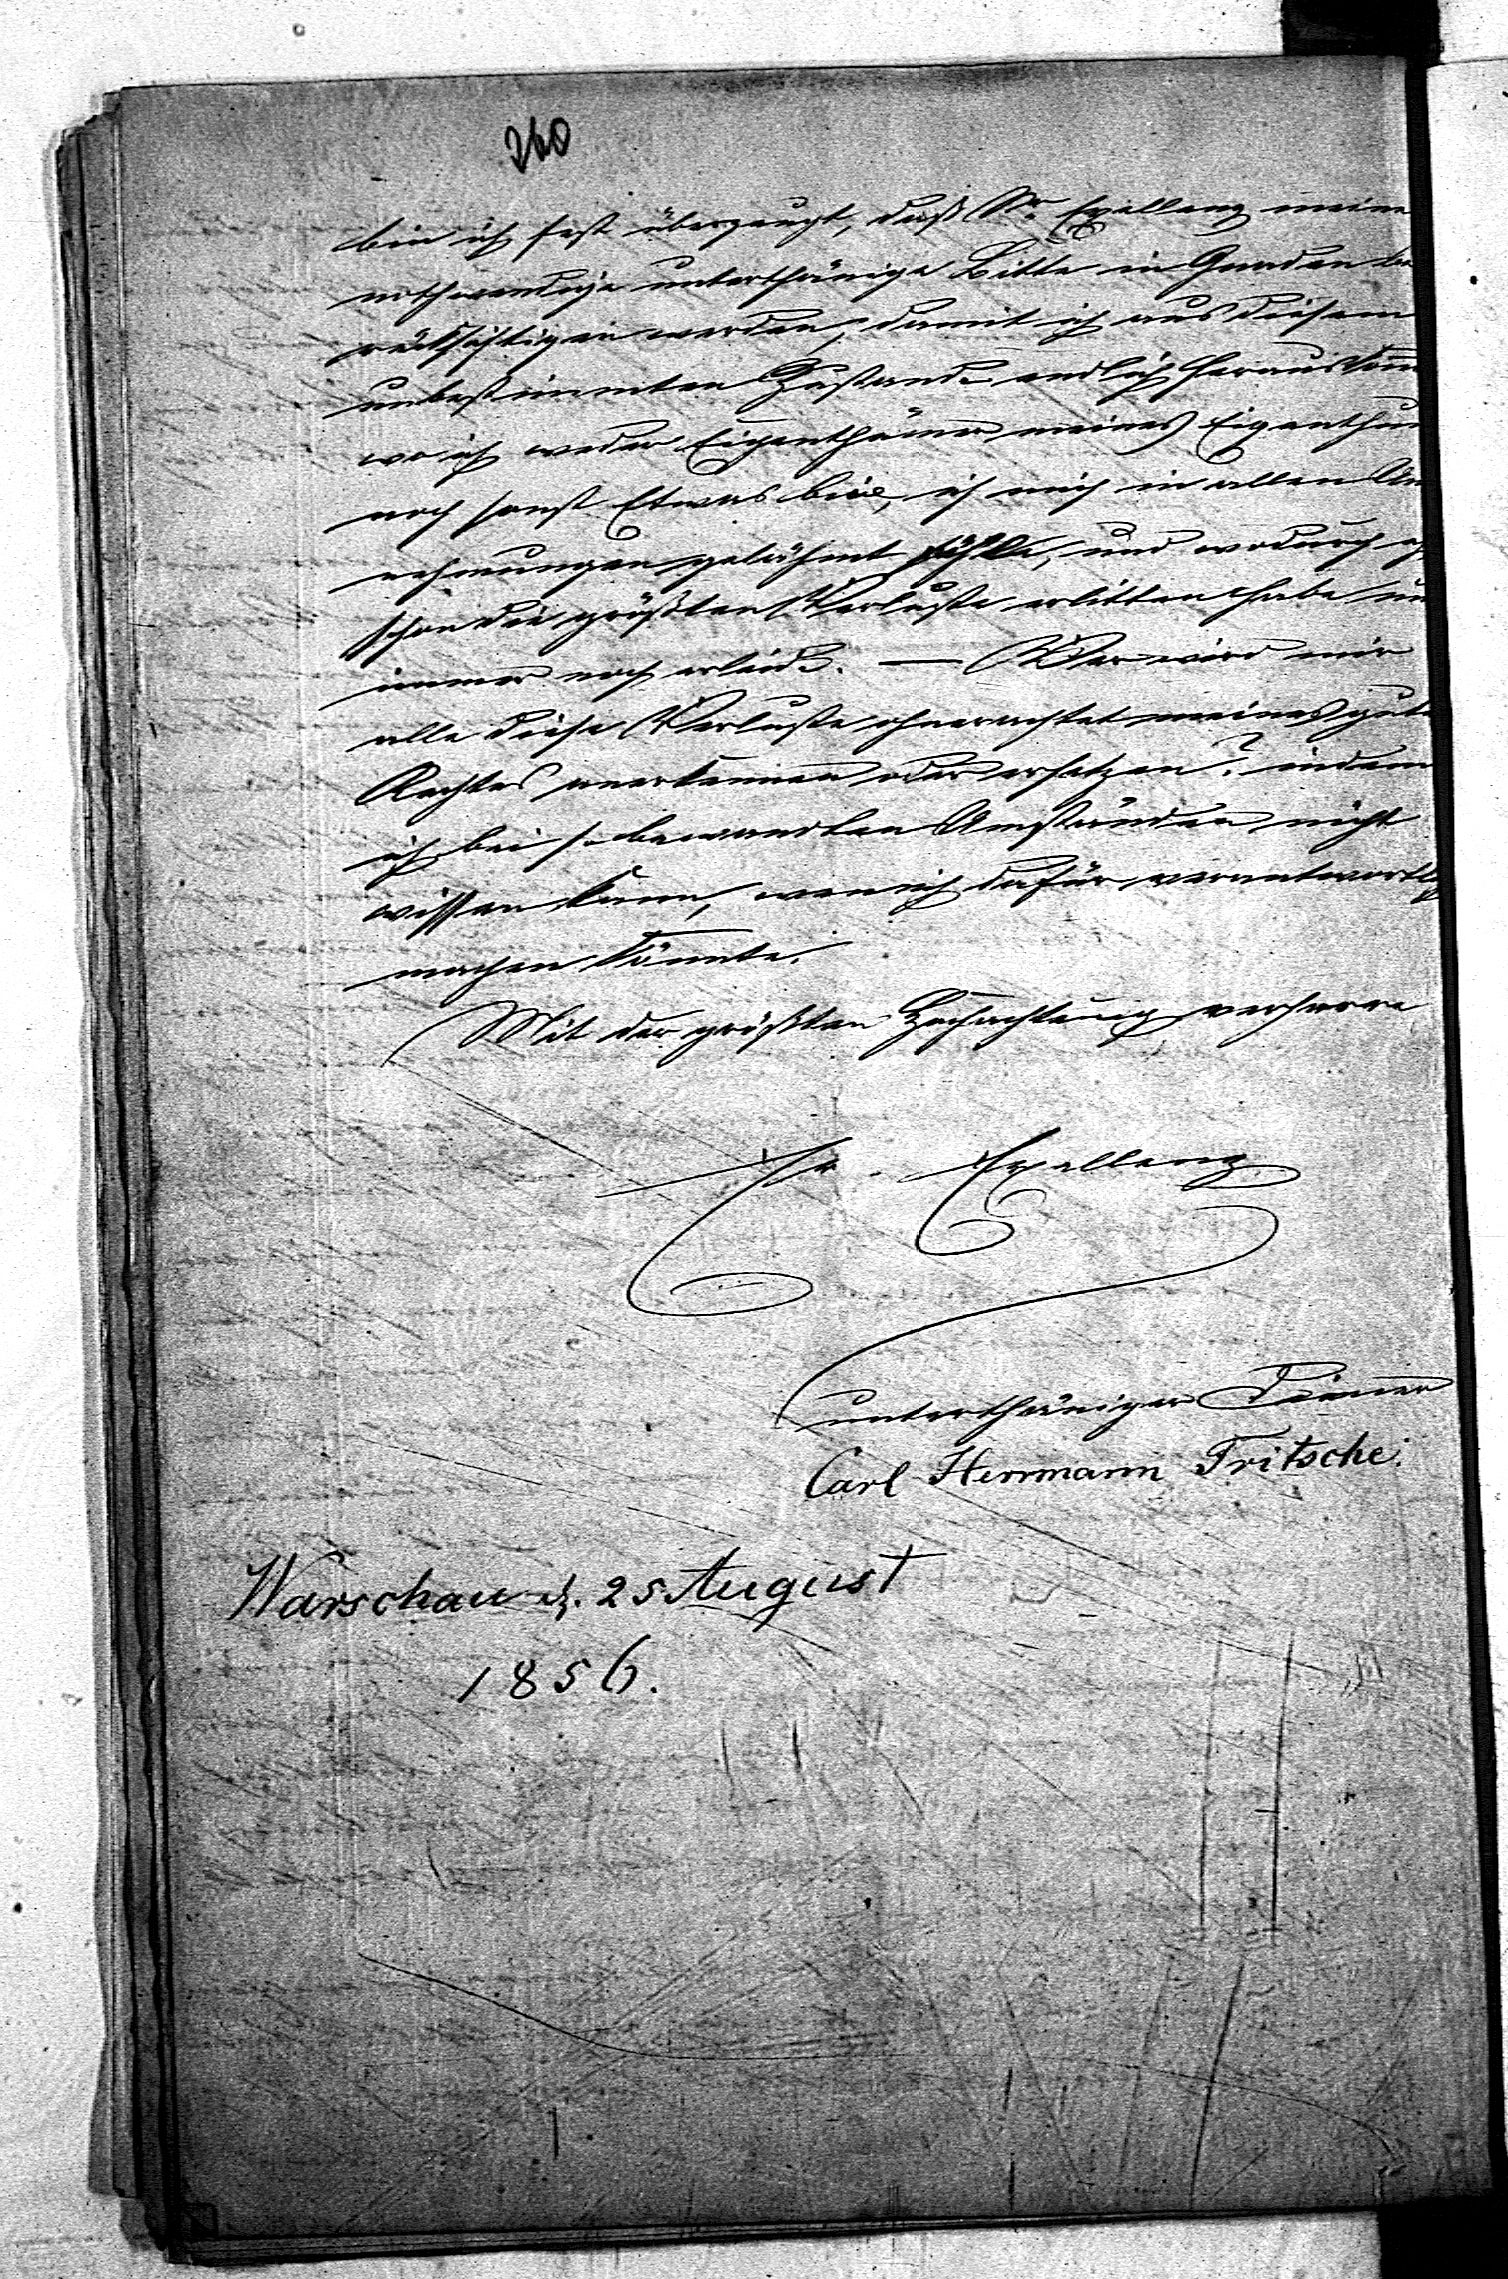 260
bin ich fest überzeugt, daß Sr. Exellenz meine
nothwendige unterthänige Bitte in Gnaden be
rücksichtigen werden, damit ich aus diesem
unbestimmten Zustande endlich herauskom
wo ich weder Eigenthümer meines Eigenthum
noch sonst Etwas bin, ich mich in allen Un
nehmungen gelähmt fühle, und wodurch ich
schon die größten Verluste erlitten habe un
immer noch erleide. — Wer wird mir
alle diese Verluste ohnerachtet meines gute
Rechtes anerkennen oder ersetzen? indem
ich bei so bewandten Umständen nicht
wissen kann, wen ich dafür verantwortlich
machen könnte.
Mit der größten Hochachtung verharre
Sr. Exellenz
unterthäniger Diener
Carl Herrmann Fritsche.
Warschau d. 25 August
1856.